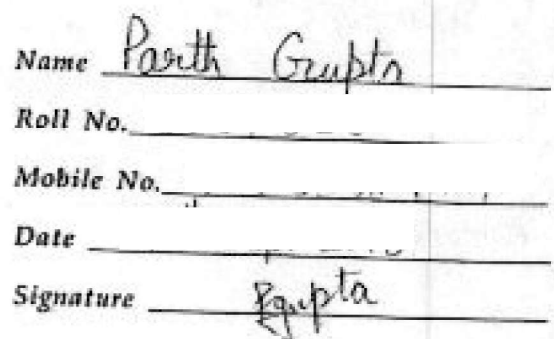 Name Parth Gupta
Roll No.
Mobile No.
Date
Signature Pgupta